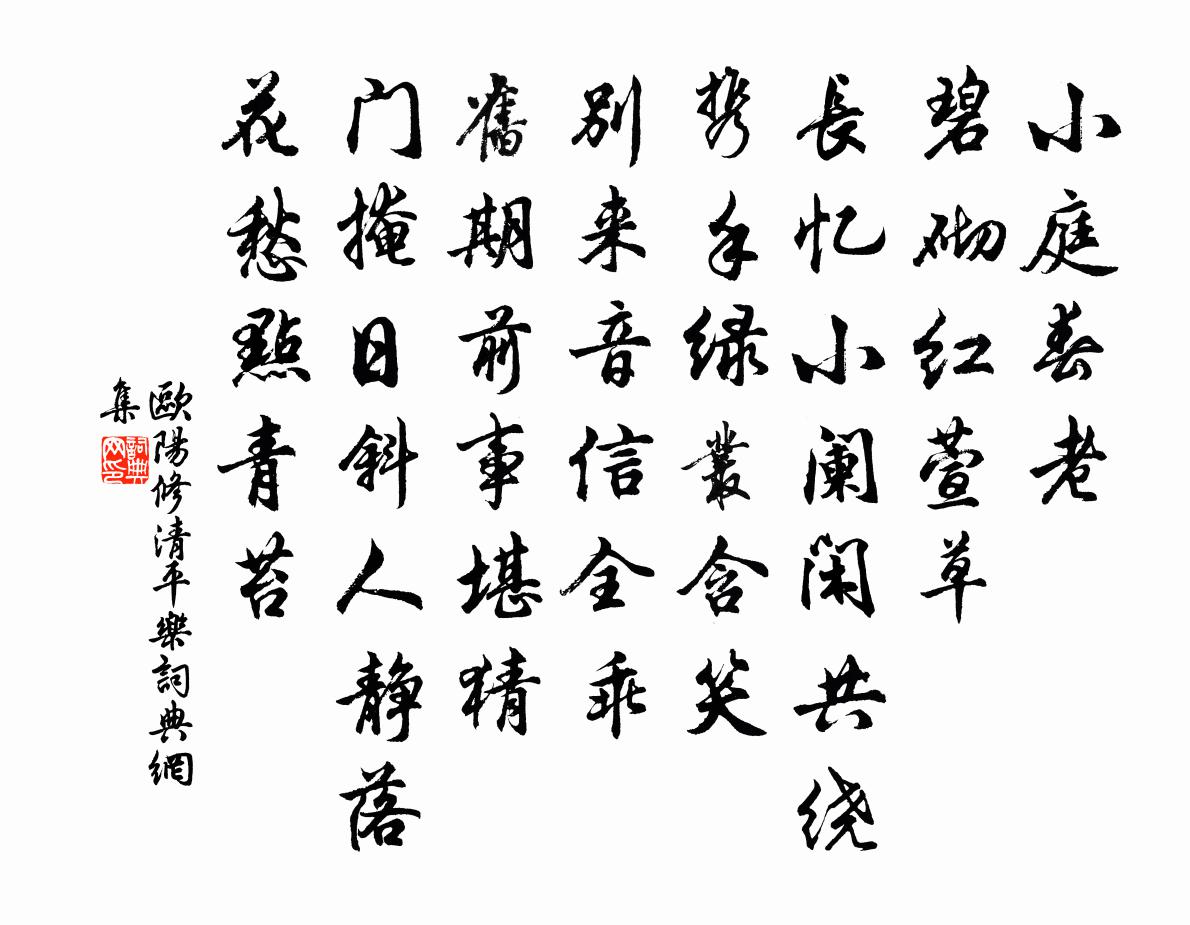 小庭春老
碧砌红萱草
長忆小阑闲共绕
携手绿叢含笑
别来音信全乖
舊期前事堪猜
门掩日斜人静落
花愁點青苔
歐陽修清平樂詞典網
集
詞典
网印